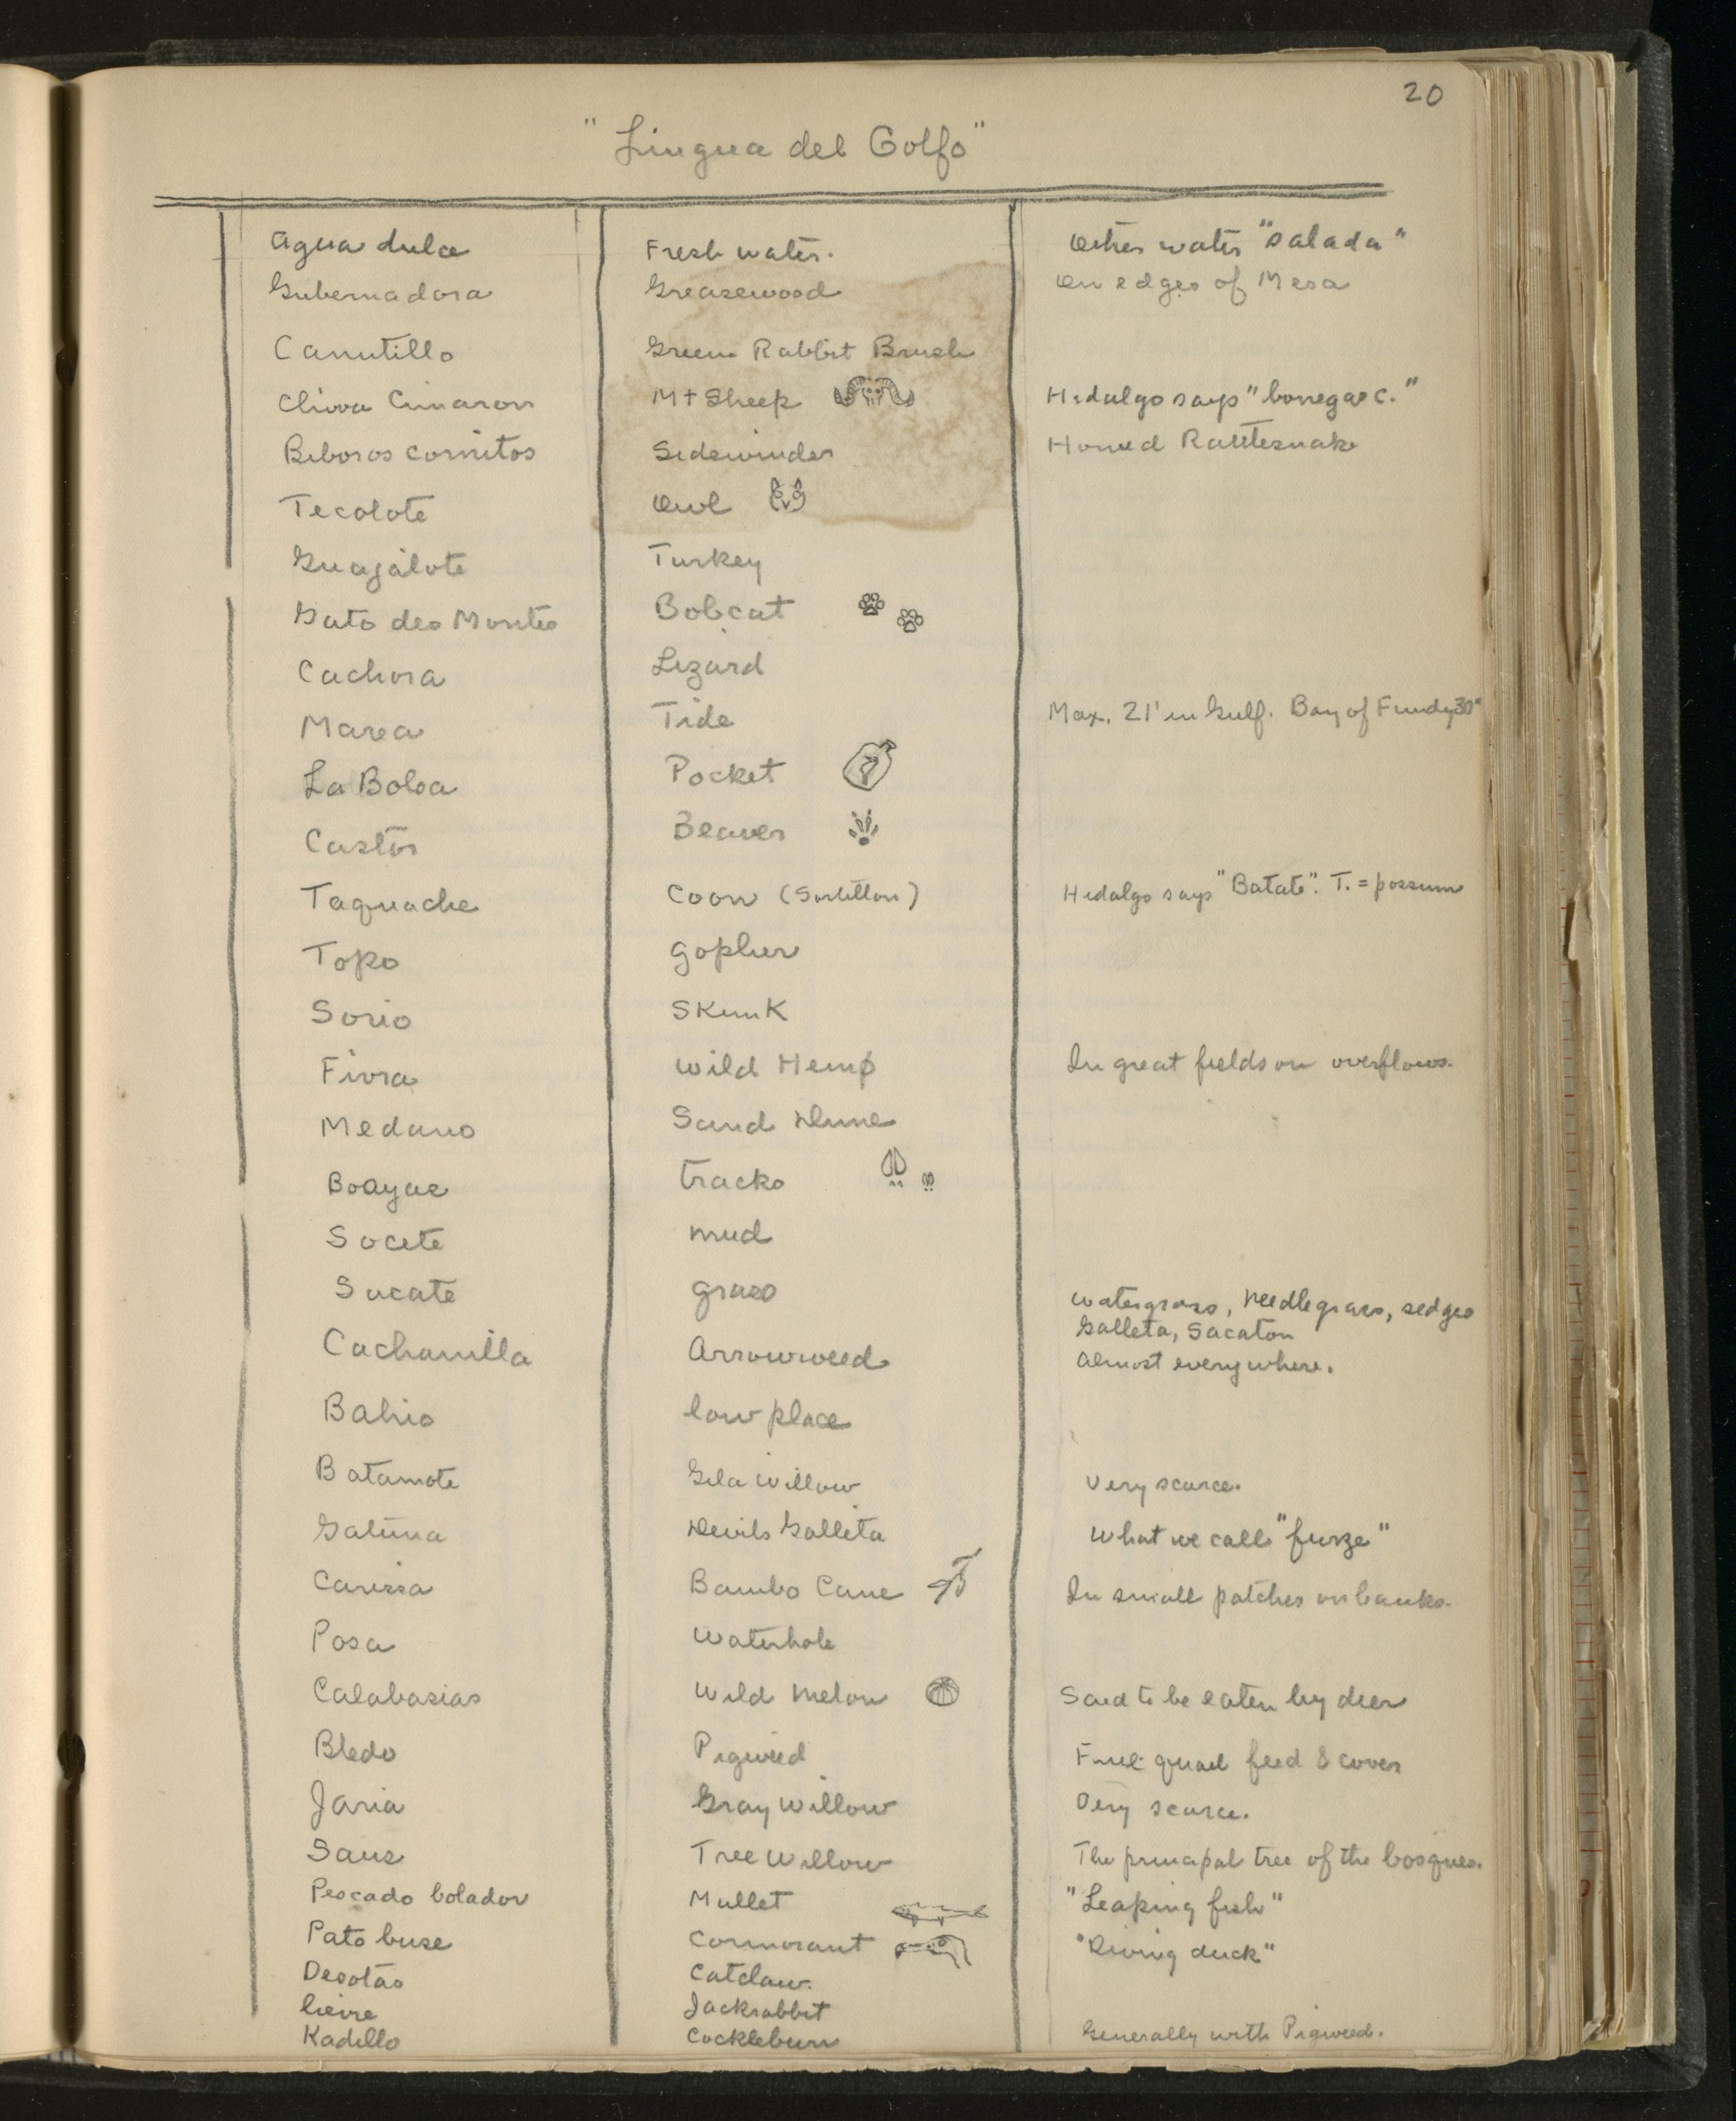 20
"Lingua del Golfo"
Agua dulce Fresh water. Other water "Salada"
Gubernadora Greasewood On edges of Mesa
Canutillo Green Rabbit Brush
Chivva Cimaron Mt Sheep Hidalgo says "borrega C."
Biboros cornitos Sidewinder Horned Rattlesnake
Tecolote Owl
Guajalote Turkey
Gato des Montes Bobcat
Cachora Lizard
Marea Tide Max. 21' in Gulf. Bay of Fundy 30"
La Bolsa Pocket
Castor Beaver
Taquache Coon (Sortillon) Hidalgo says "Batate". T. = possum
Topo gopher
Sorio Skunk
Fivra Wild Hemp In great fields on overflows.
Medano Sand Dune
Boayae tracks
Socete mud
Sacate grass watergrass, needlegrass, sedges
Galleta, Sacaton
Cachanilla Arrowweed Almost everywhere.
Bahio low place
Batamote Gila Willow Very scarce.
Gatuna Devils Galleta What we call "furze"
Carissa Bambo Cane In small patches on banks.
Posa Waterhole
Calabasias Wild Melon Said to be eaten by deer
Bledo Pigweed Fine quail feed & cover
Jaria Gray Willow Very scarce.
Saus Tree Willow The principal tree of the bosques.
Pescado bolador Mullet "Leaping fish"
Pato buse Cormorant "Diving duck"
Desotas Catclaw.
lievre Jackrabbit
Kadillo Cockleburr Generally with Pigweed.